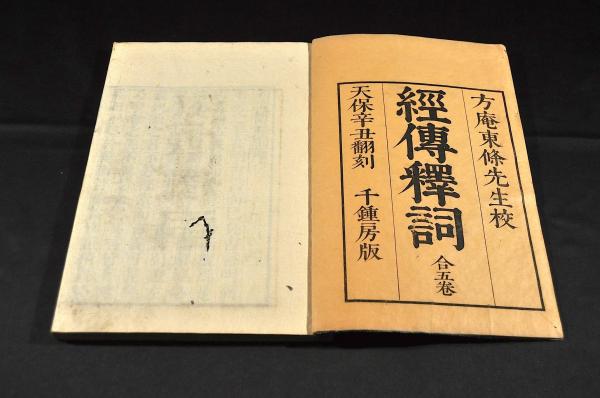 方庵東條先生校
經傳釋詞 合五卷
天保辛丑翻刻 千鍾房版